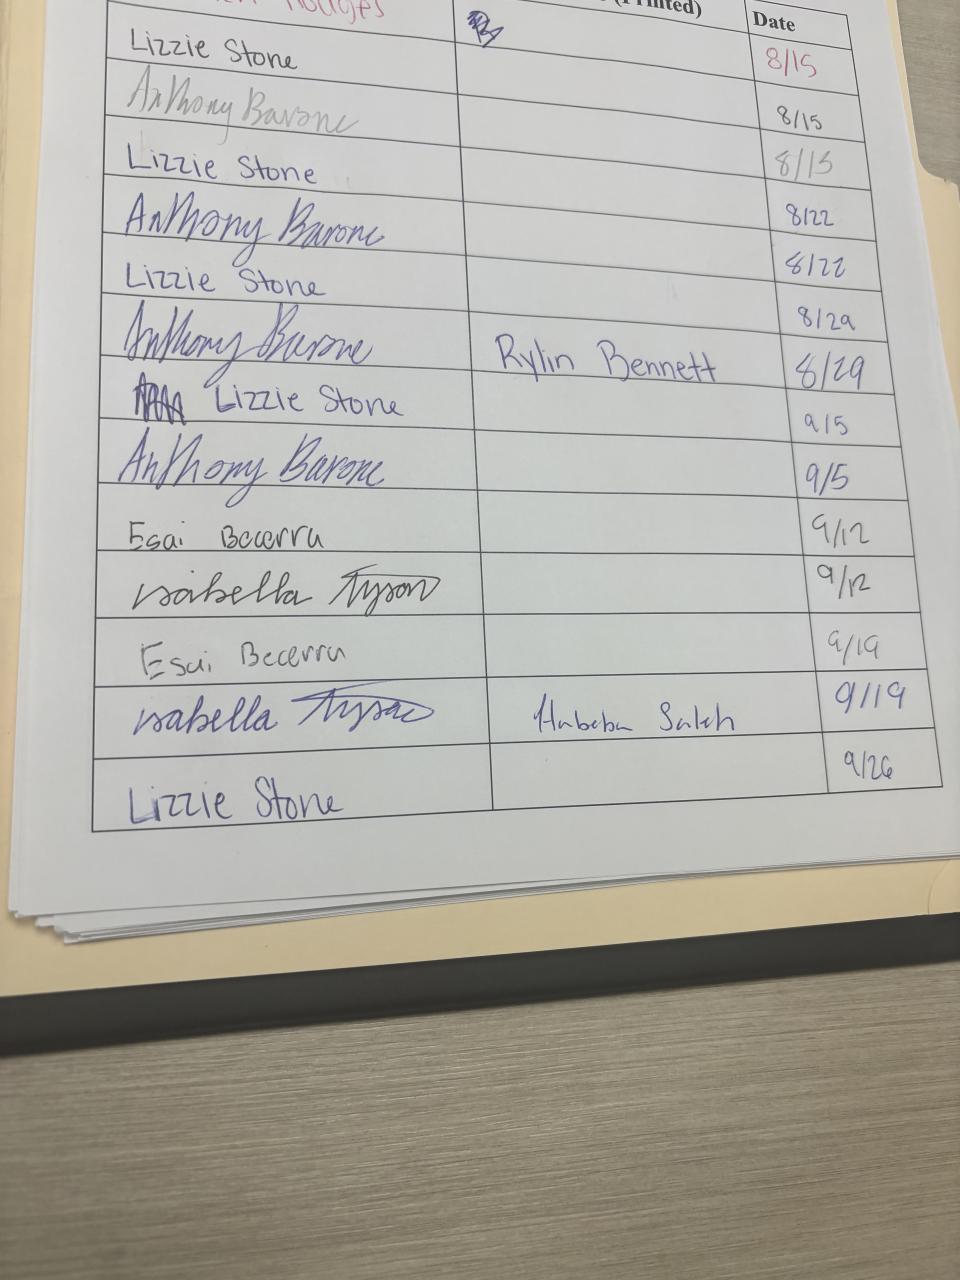 Hodges (Printed) Date
8/15
Lizzie Stone 8/15
Anthony Barone 8/15
Lizzie Stone 8/22
Anthony Barone 8/22
Lizzie Stone 8/29
Anthony Barone Rylin Bennett 8/29
Lizzie Stone 9/5
Anthony Barone 9/5
Esai Becerra 9/12
Isabella Tyson 9/12
Esai Becerra 9/19
Isabella Tyson Habeba Saleh 9/19
Lizzie Stone 9/26